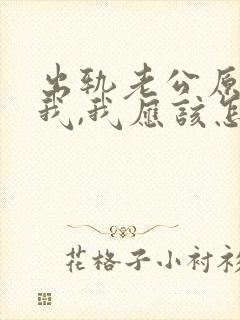 出轨老公原
我,我应该怎
花格子小衬衫